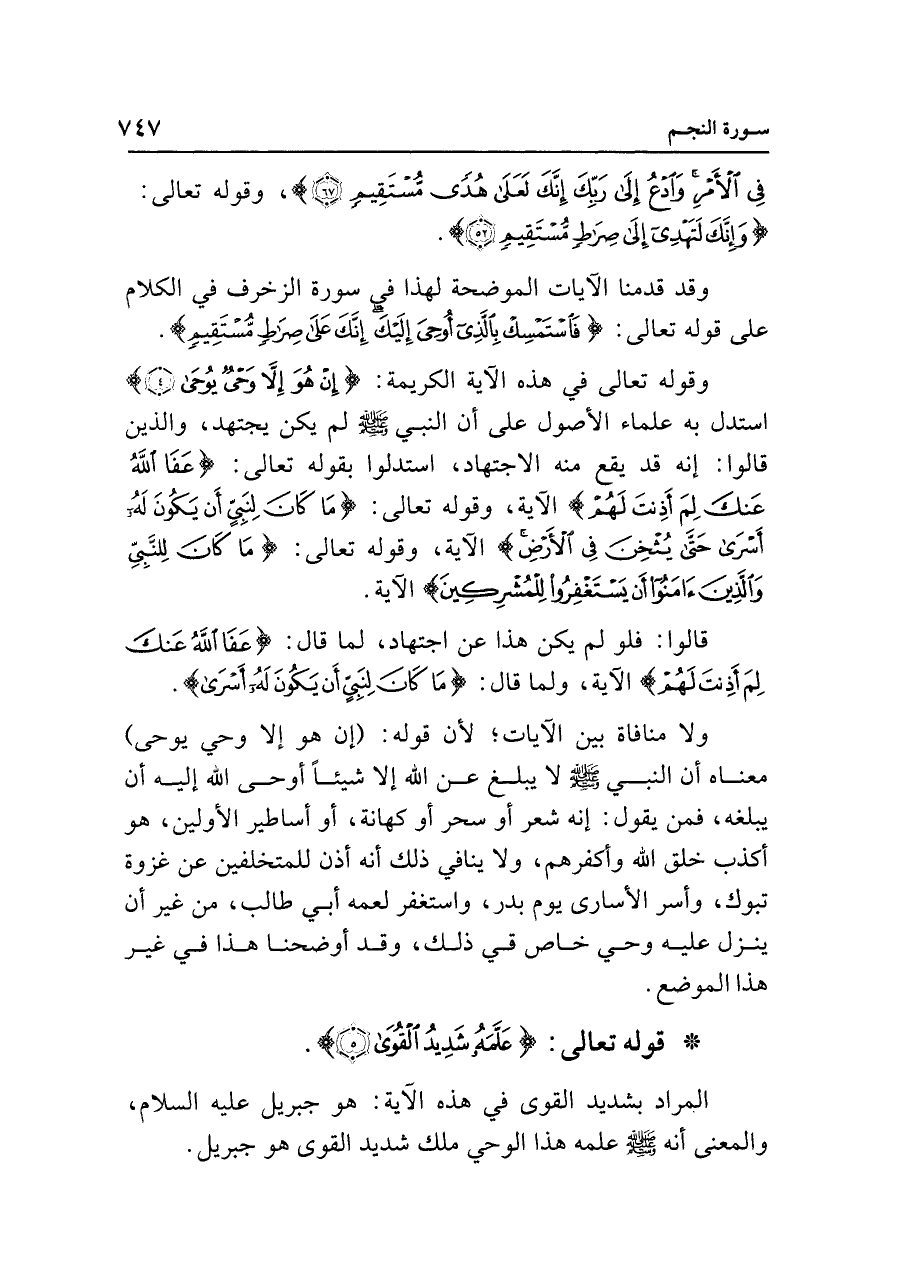 سورة النجم ٧٤٧
فِي ٱلۡأَمۡرِۚ وَٱدۡعُ إِلَىٰ رَبِّكَ إِنَّكَ لَعَلَىٰ هُدٗى مُّسۡتَقِيمٖ ۝٦٧﴾، وقوله تعالى:
﴿وَإِنَّكَ لَتَهۡدِيٓ إِلَىٰ صِرَٰطٖ مُّسۡتَقِيمٖ ۝٥٢﴾.
وقد قدمنا الآيات الموضحة لهذا في سورة الزخرف في الكلام
على قوله تعالى: ﴿فَٱسۡتَمۡسِكۡ بِٱلَّذِيٓ أُوحِيَ إِلَيۡكَۖ إِنَّكَ عَلَىٰ صِرَٰطٖ مُّسۡتَقِيمٖ﴾.
وقوله تعالى في هذه الآية الكريمة: ﴿إِنۡ هُوَ إِلَّا وَحۡيٞ يُوحَىٰ ۝٤﴾
استدل به علماء الأصول على أن النبي ﷺ لم يكن يجتهد، والذين
قالوا: إنه قد يقع منه الاجتهاد، استدلوا بقوله تعالى: ﴿عَفَا ٱللَّهُ
عَنكَ لِمَ أَذِنتَ لَهُمۡ﴾ الآية، وقوله تعالى: ﴿مَا كَانَ لِنَبِيٍّ أَن يَكُونَ لَهُۥٓ
أَسۡرَىٰ حَتَّىٰ يُثۡخِنَ فِي ٱلۡأَرۡضِۚ﴾ الآية، وقوله تعالى: ﴿مَا كَانَ لِلنَّبِيِّ
وَٱلَّذِينَ ءَامَنُوٓاْ أَن يَسۡتَغۡفِرُواْ لِلۡمُشۡرِكِينَ﴾ الآية.
قالوا: فلو لم يكن هذا عن اجتهاد، لما قال: ﴿عَفَا ٱللَّهُ عَنكَ
لِمَ أَذِنتَ لَهُمۡ﴾ الآية، ولما قال: ﴿مَا كَانَ لِنَبِيٍّ أَن يَكُونَ لَهُۥٓ أَسۡرَىٰ﴾.
ولا منافاة بين الآيات؛ لأن قوله: (إن هو إلا وحي يوحى)
معناه أن النبي ﷺ لا يبلغ عن الله إلا شيئاً أوحى الله إليه أن
يبلغه، فمن يقول: إنه شعر أو سحر أو كهانة، أو أساطير الأولين، هو
أكذب خلق الله وأكفرهم، ولا ينافي ذلك أنه أذن للمتخلفين عن غزوة
تبوك، وأسر الأسارى يوم بدر، واستغفر لعمه أبي طالب، من غير أن
ينزل عليه وحي خاص قي ذلك، وقد أوضحنا هذا في غير
هذا الموضع.
* قوله تعالى: ﴿عَلَّمَهُۥ شَدِيدُ ٱلۡقُوَىٰ ۝٥﴾.
المراد بشديد القوى في هذه الآية: هو جبريل عليه السلام،
والمعنى أنه ﷺ علمه هذا الوحي ملك شديد القوى هو جبريل.